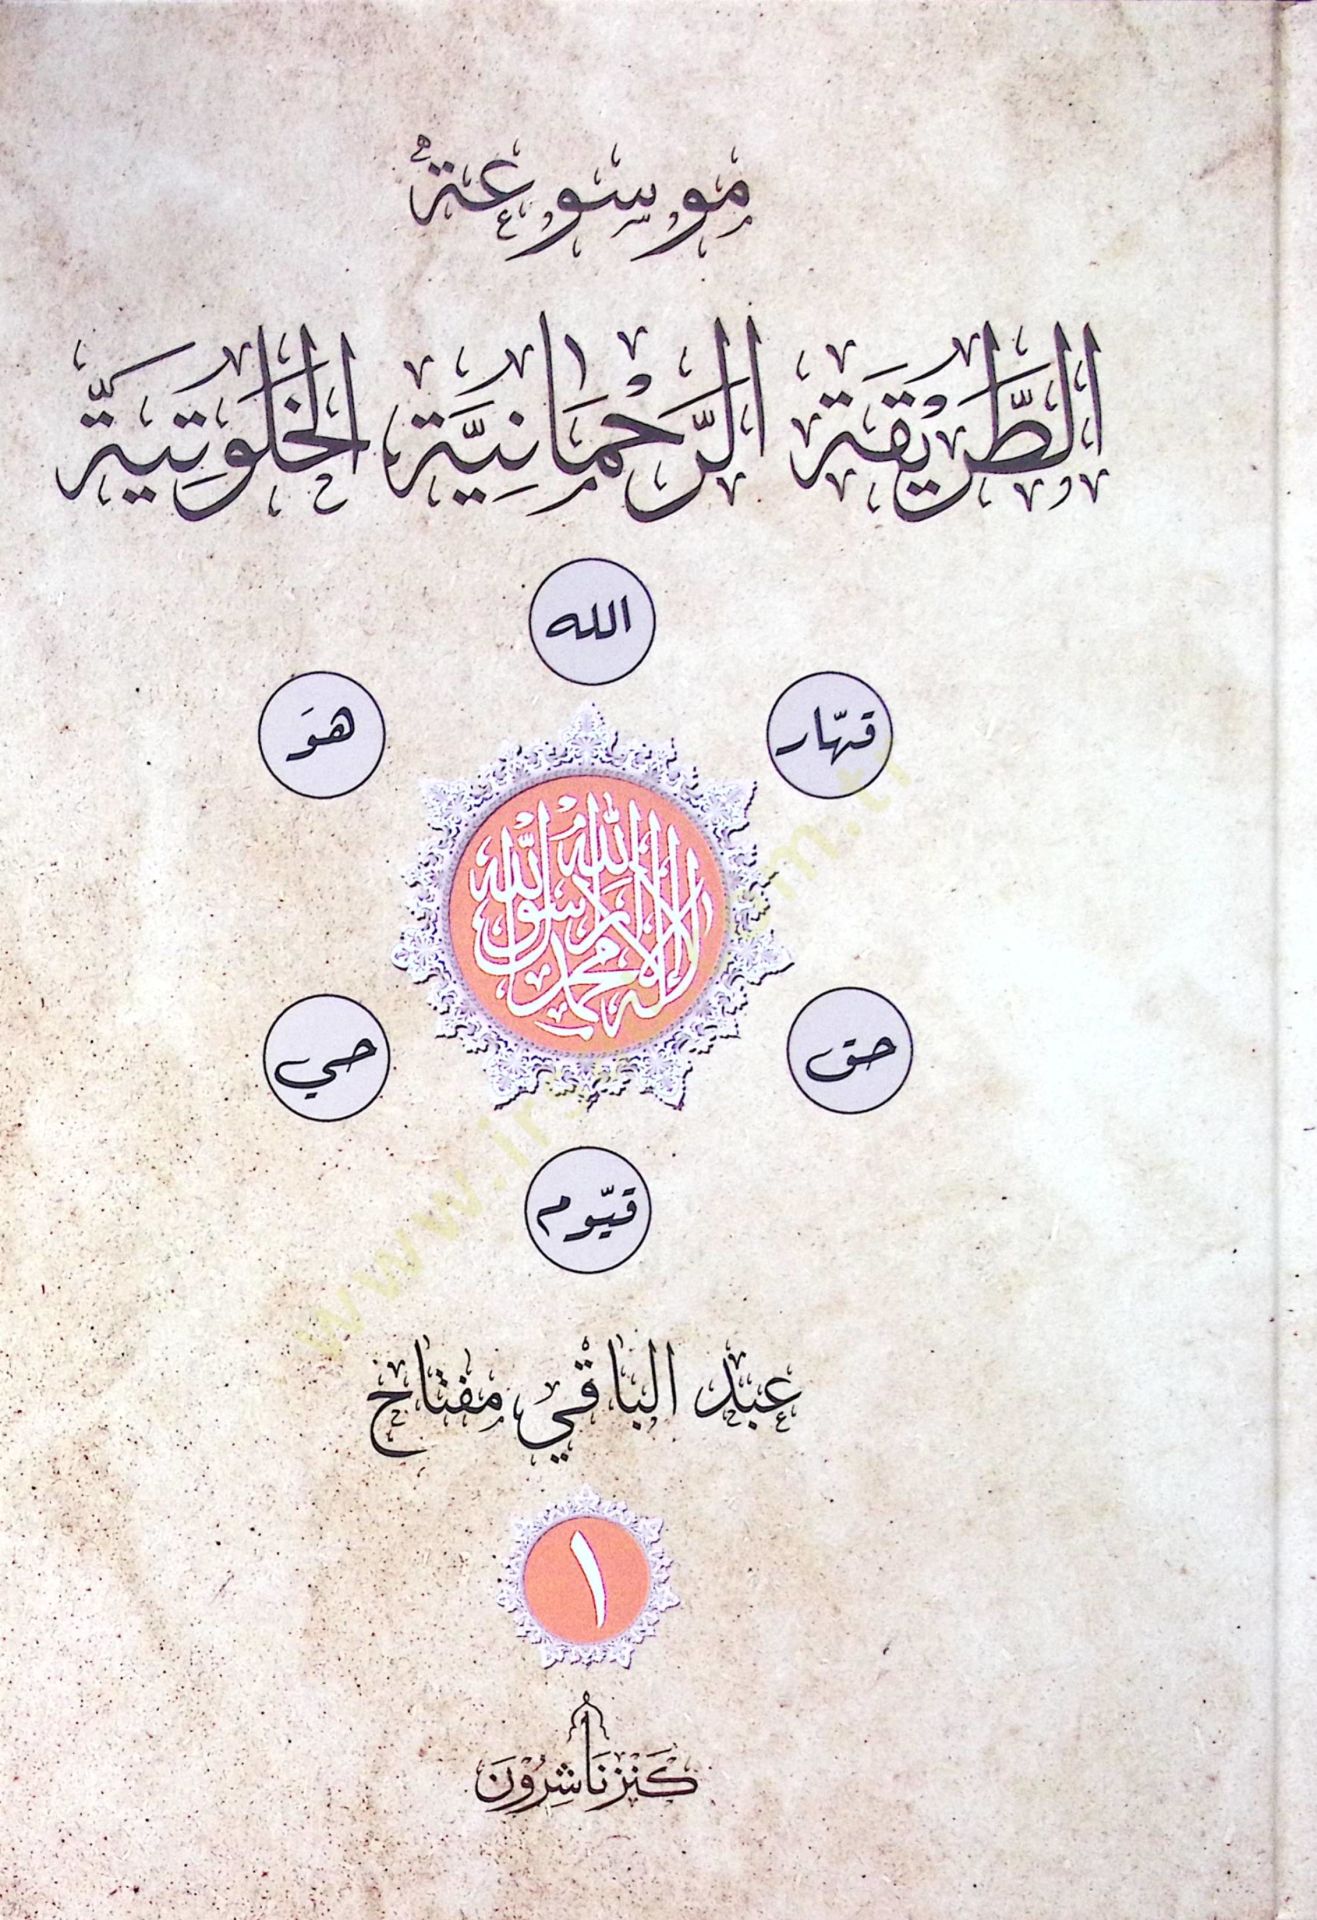 موسوعة
الطَّرِيْقَة الرَّحْمَانِيَّة الخَلْوَتِيَّة
الله
قهّار
هوَ
لا إله إلا الله محمد رسول الله
حق
حي
قيّوم
عبد الباقي مفتاح
١
كَنْز نَاشِرُوْنَ